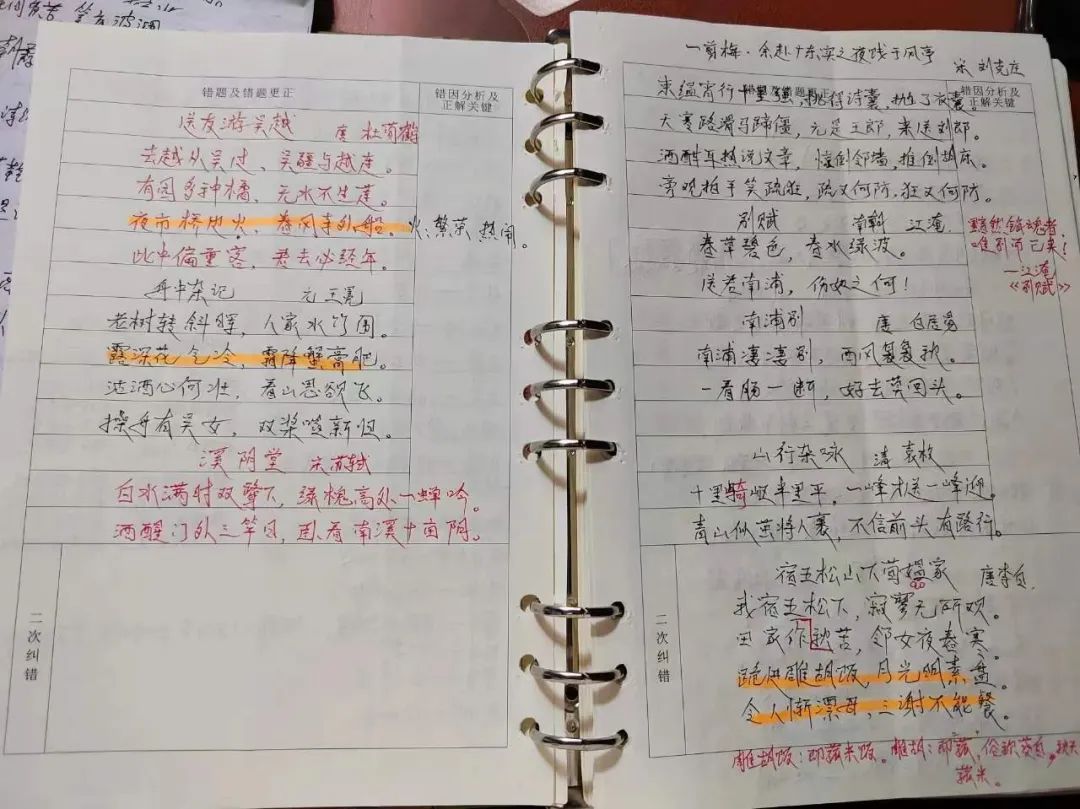 错题及错题更正
错因分析及
正解关键
送友游吴越 唐 杜荀鹤
去越从吴过、吴疆与越连。
有园多种橘，无水不生莲。
夜市桥边火、春风寺外船。
火：繁荣 热闹。
此中偏重客，君去必经年。
舟中杂记 元 王冕
老树转斜晖，人家水竹围。
露深花气冷，霜降蟹膏肥。
沽酒心何壮，看山思欲飞。
操舟有吴女，双桨唱新归。
溪阴堂 宋苏轼
白水满时双鹭下，绿槐高处一蝉吟。
酒醒门外三竿日，看南溪十亩阴。
二次纠错
一剪梅·余赴广东实之夜饯于风亭
宋 刘克庄
束缊宵行十里强，挑得诗囊，抛了衣囊。
错因分析及
正解关键
天寒路滑马蹄僵，元是王郎，来送刘郎。
酒酣耳热说文章，惊倒邻墙，推倒胡床。
旁观拍手笑疏狂，疏又何防.狂又何防.
别赋 南朝 江淹
春草碧色，春水绿波。
送君南浦，伤如之何！
黯然销魂者
唯别而已矣！
—江淹
《别赋》
南浦别 唐 白居易
南浦凄凄别，西风袅袅秋。
一看肠一断，好去莫回头。
山行杂咏 清 袁枚
十里骑岖半里平，一峰才送一峰迎。
青山似茧将人裹，不信前头有路行。
宿五松山下荀媪家 唐李白.
我宿五松下，寂寥无所欢。
田家作秋苦，邻女夜舂寒。
跪进雕胡饭，月光明素盘。
令人惭漂母，三谢不能餐。
雕胡饭：即菰米饭。雕胡：即菰，俗称茭白，秋天
菰米。
二次纠错